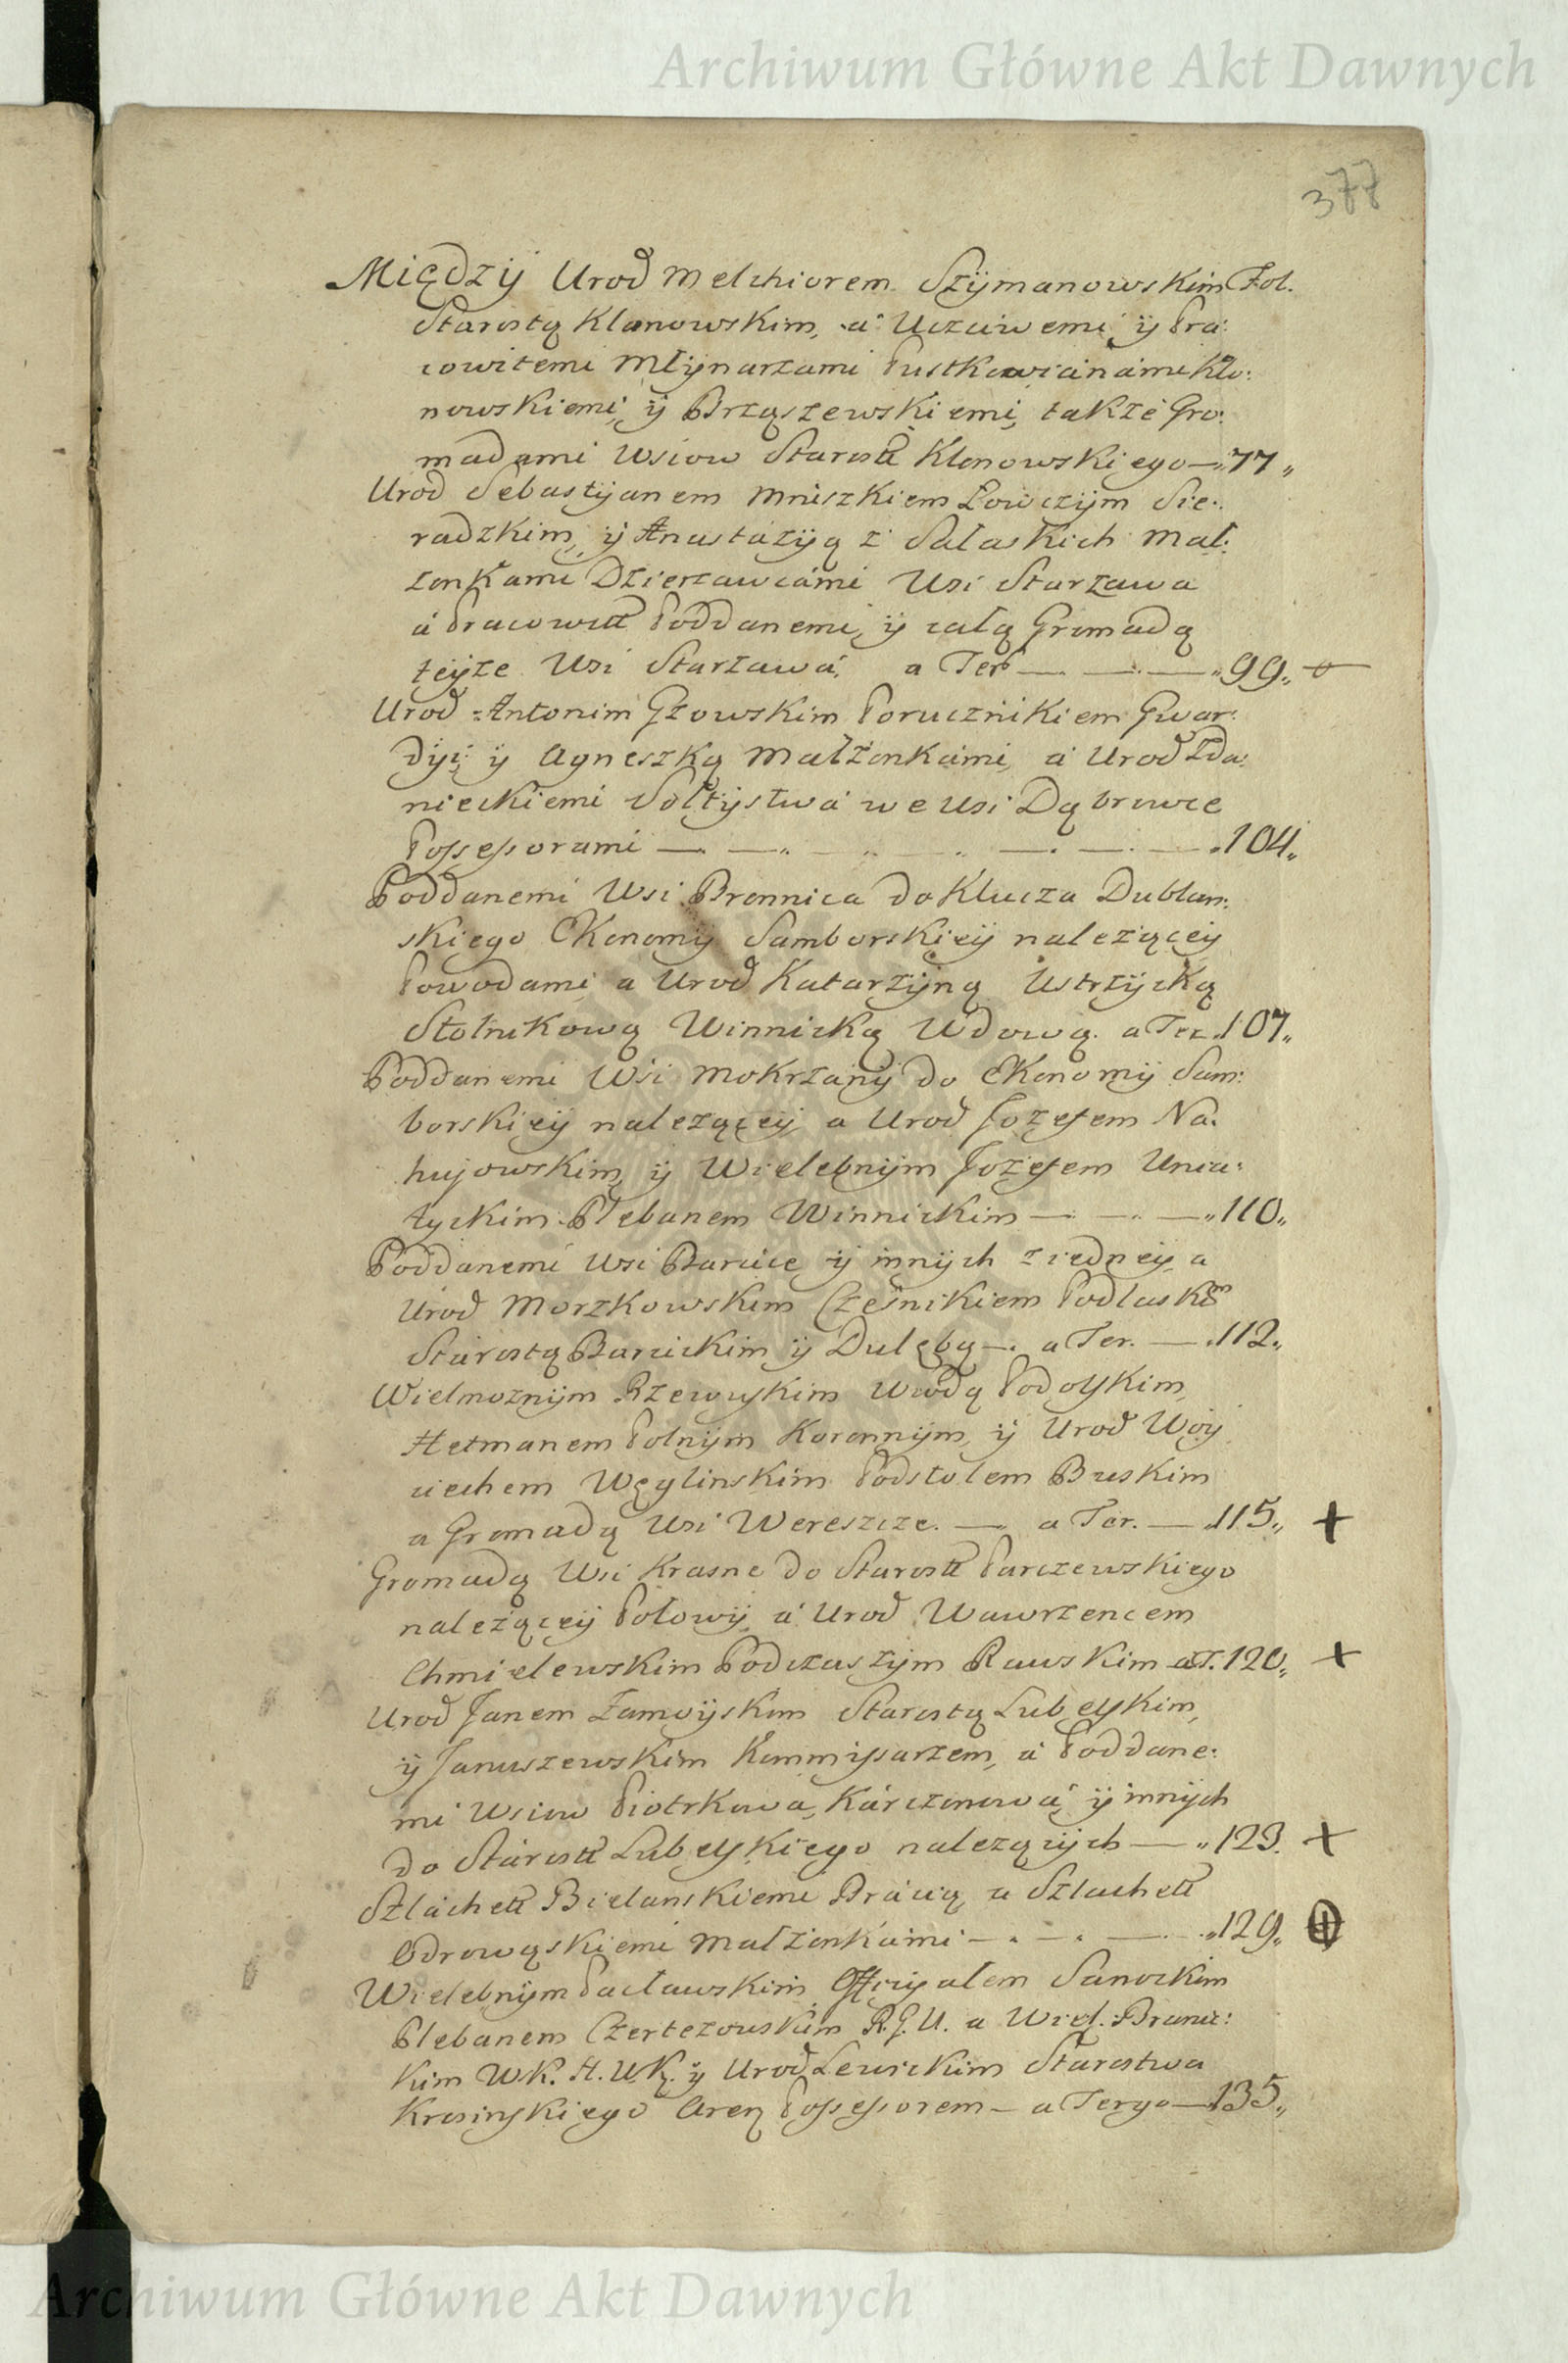 Archiwum Główne Akt Dawnych
377
Między Urod Melchiorem Szÿmanowskim Fol.
Starostą Klonowskim, a Uczciwemi ÿ Pra:
cowitemi Młÿnarzami Pustkowianami Klo:
nowskiemi, ÿ Brząszewskiemi, także Gro:
madami Wsiow Starostt Klonowskiego — 77,,
Urod Sebastÿanem Mniszkiem Łowczÿm Sie:
radzkim, ÿ Anastazÿą z Sałaskich Mał:
zonkami Dzierzawcami Wsi Starzawa
á Pracowitt Poddanemi, ÿ całą Gromadą
teÿze Wsi Starzawá, a Ter — — — ,,99,, +
Urod Antonim Głowskim Porucznikiem Gwar:
dÿi, ÿ Agneszką Małżonkámi, á Urod Zda:
nieckiemi Sołtÿstwá we Wsi Dąbrowce
Possessorami — — — — — — ,,104,,
Poddanemi Wsi Bronnica do Klucza Dublan:
skiego Ekonomÿ Samborskieÿ naleząceÿ
Powodami a Urod Katarzÿną Ustrzÿcką
Stolnikową Winnicką Wdową. a Ter. 107,,
Poddanemi Wsi Mokrzanÿ do Ekonomÿ Sam:
borskieÿ nalezącеÿ, a Urod Jozefem Na:
hujowskim, ÿ Wielebnÿm Jozefem Unia:
tyckim Plebanem Winnickim — — — ,,110,,
Poddanemi Wsi Barcice ÿ innÿch z iedneÿ, a
Urod Morzkowskim Cześnikiem Podlaskim
Starostą Barcickim ÿ Dulębą — a Ter. — 112,,
Wielmoznÿm Rzewuskim Wwdą Podolskim,
Hetmanem Polnÿm Koronnÿm, ÿ Urod Woÿ
ciechem Węglinskim Podstolem Buskim
a Gromadą Wsi Wereszcze. — a Ter. — 115,, +
Gromadą Wsi Krasne do Starostt Parczewskiego
nalezącеÿ Połowÿ, á Urod Wawrzencem
Chmielewskim Podczaszÿm Rawskim a T. 120,, +
Urod Janem Zamoÿskim Starostą Lubelskim,
ÿ Januszewskim Kommissarzem, á Poddane:
mi Wsiow Piotrkowa, Kárczmowá, ÿ innÿch
do Starostt Lubelskiego nalezącÿch — ,,123. +
Szlachett Bielanskiemi Bracią, a Szlachett
Odrowąskiemi Małzonkámi — — — ,,129,,
Wielebnÿm Pacławskim, Officÿałem Sanockim
Plebanem Czertezouskim R.G.U. a Wiel. Branic:
kim WK. H. WK. ÿ Urod Lewickim Starostwa
Krosinskiego Aren Possessorem — a Tergo — 135,,
Archiwum Główne Akt Dawnych